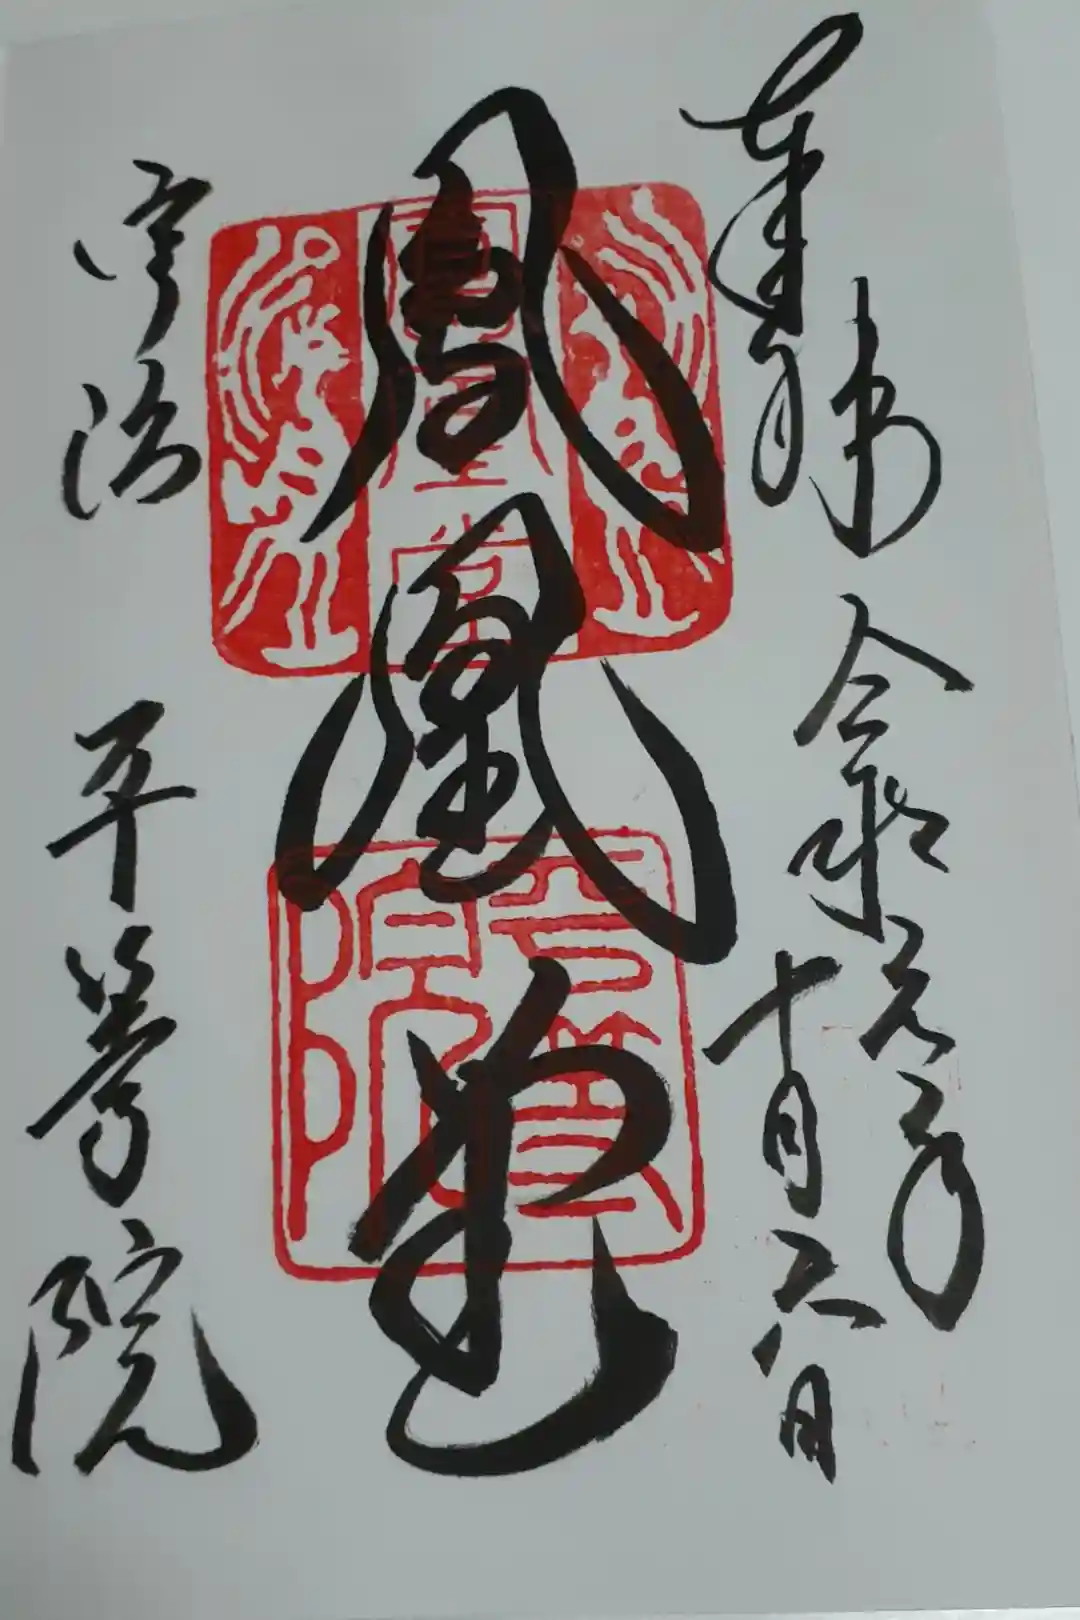 奉拝
令和元年
十月六日
鳳凰堂
宇治 平等院
鳳凰堂
平等院